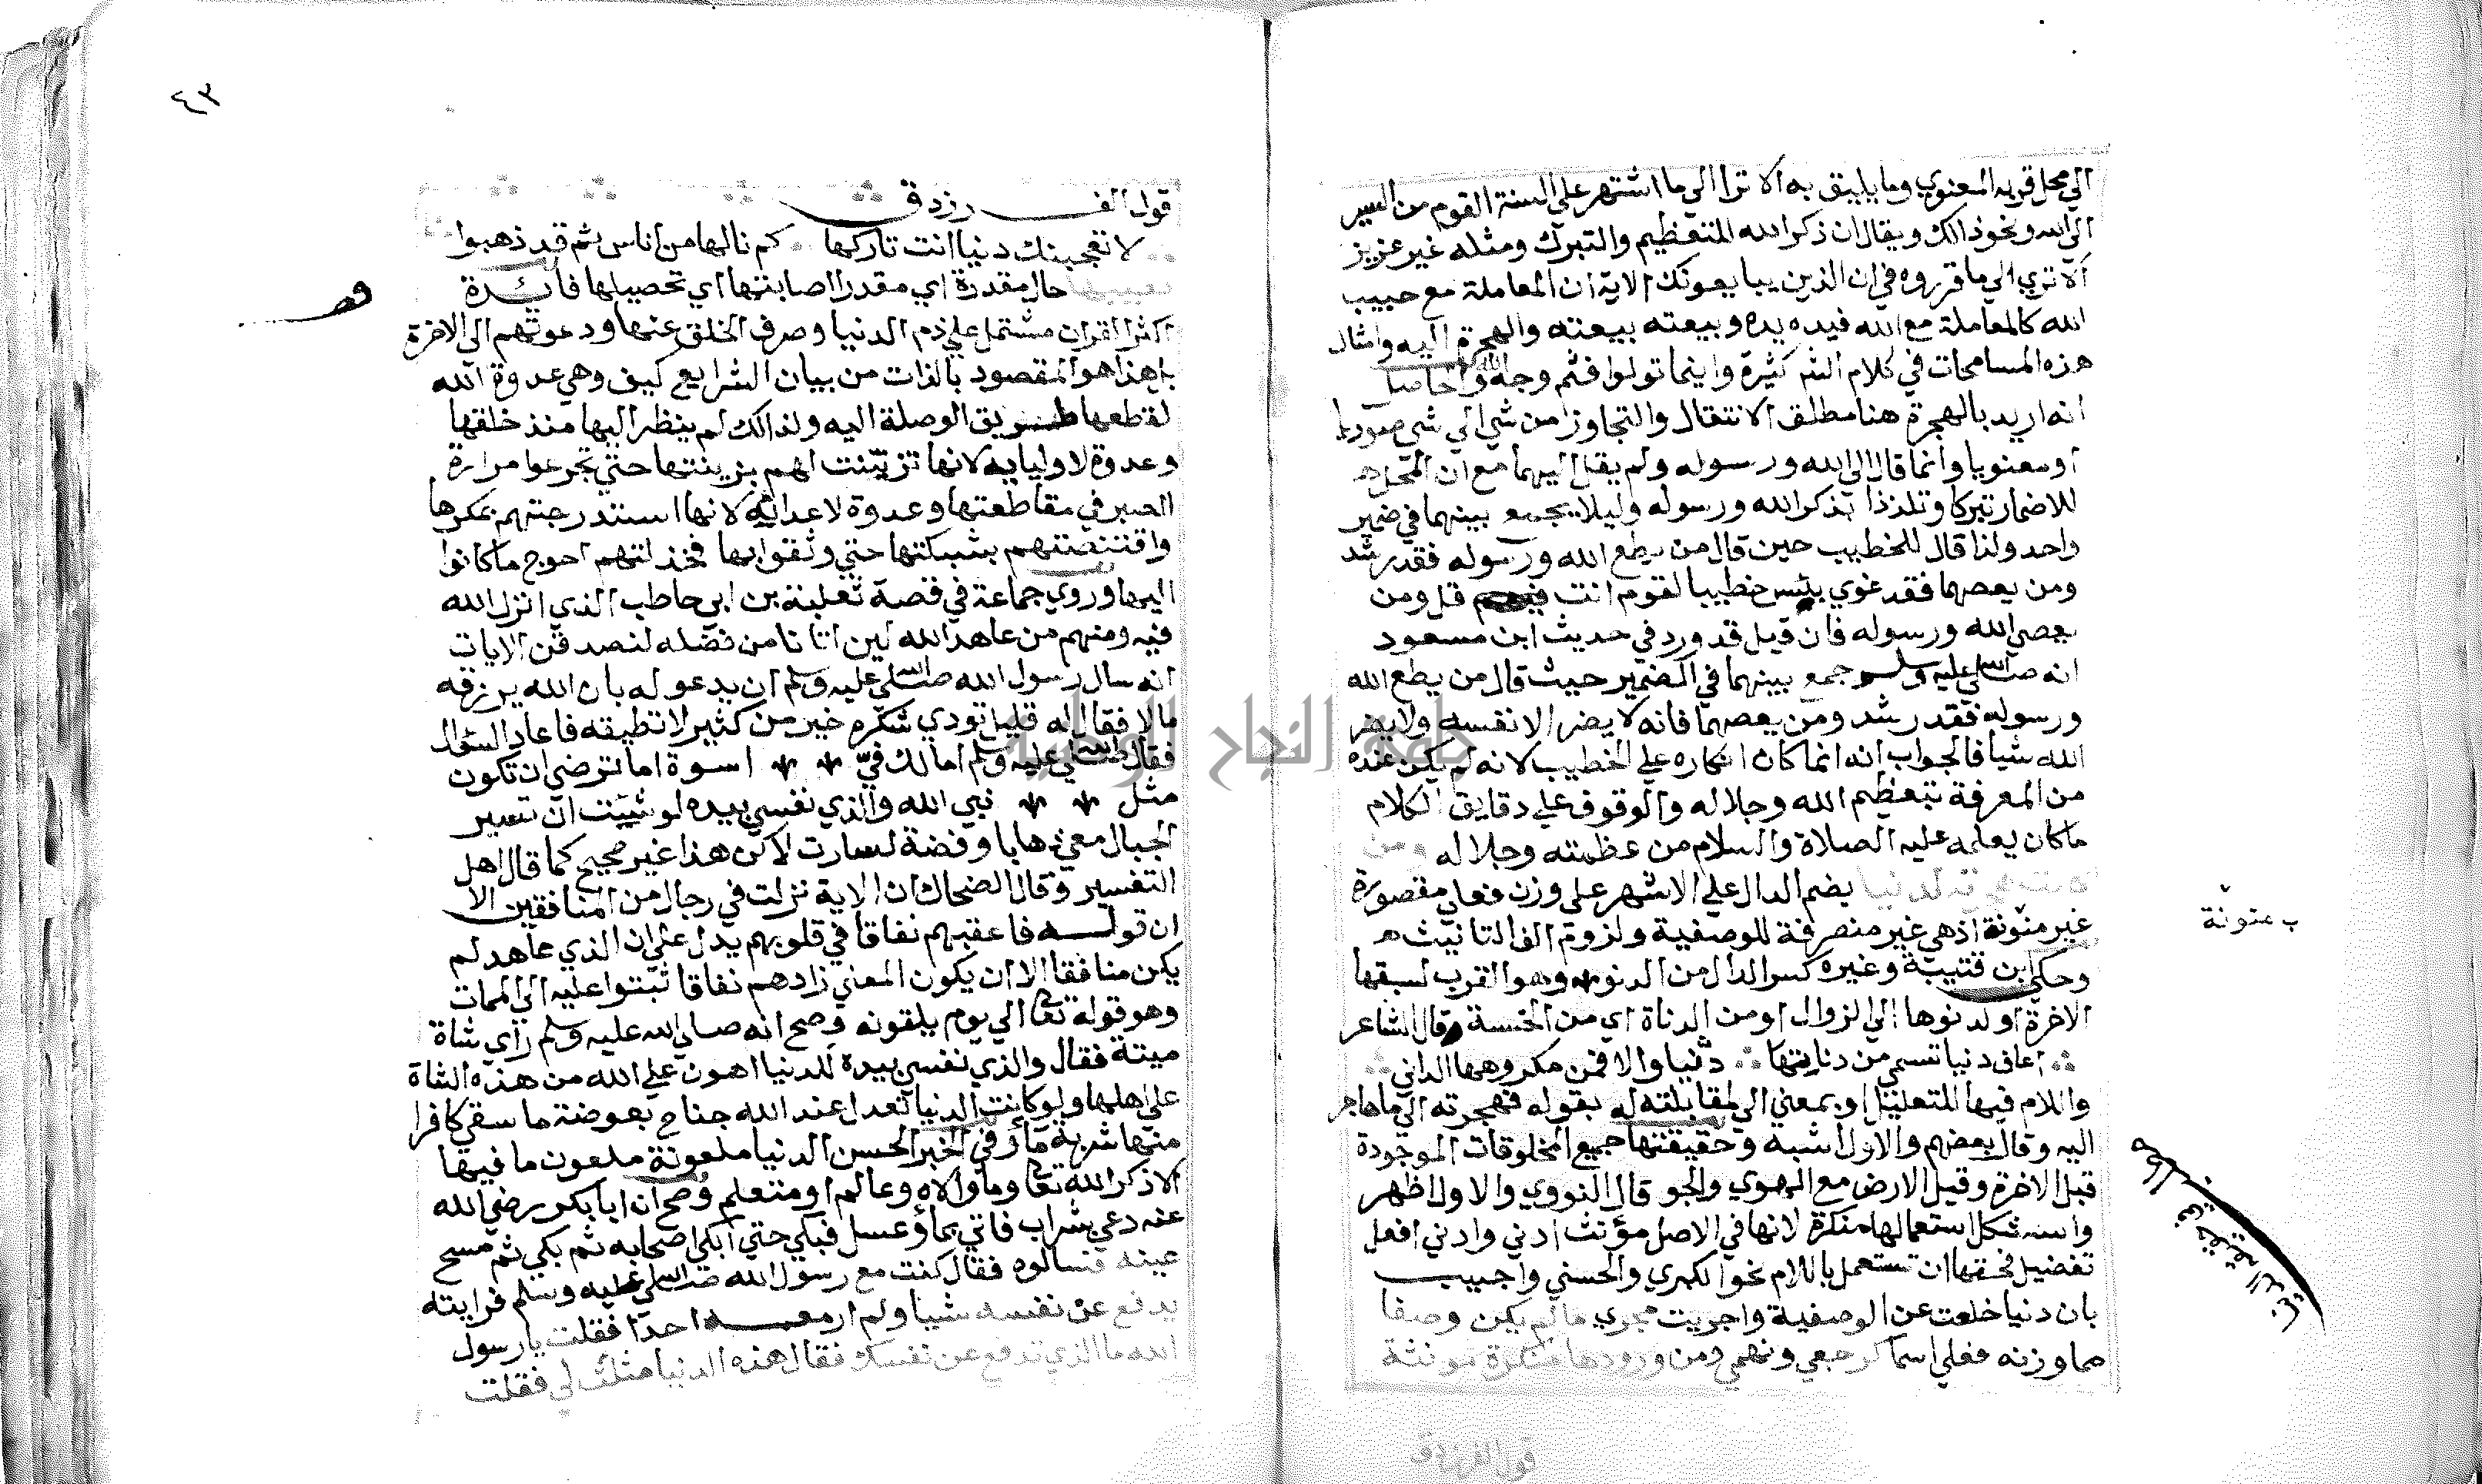 الي محل قربه المعنوي وما يليق به الا ترا الي ما اشتهر علي السنة القوم من السير
الي الله ونحو ذالك ويقال ان ذكر الله للتعظيم والتبرك ومثله غير عزيز
الا تري الي ما قرروه في ان الذين يبايعونك الاية ان المعاملة مع حبيب
الله كالمعاملة مع الله فيده يده وبيعته بيعته والهجرة اليه وامثال
هذه المسامحات في كلام الله كثيرة واينما تولوا فثم وجه الله والحاصل
انه اريد بالهجرة هنا مطلق الانتقال والتجاوز من شي الي شي صوريا
او معنويا وانما قال الي الله ورسوله ولم يقل اليهما مع ان المحل
للاضمار تبركا وتلذذا بذكر الله ورسوله وليلا يجمع بينهما في ضمير
واحد ولذا قال للخطيب حين قال من يطع الله ورسوله فقد رشد
ومن يعصهما فقد غوي بئس خطيبا لقوم انت قل ومن
يعصي الله ورسوله فان قيل قد ورد في حديث ابن مسعود
انه صلي الله عليه وسلم جمع بينهما في الضمير حيث قال من يطع الله
ورسوله فقد رشد ومن يعصهما فانه لا يضر الا نفسه ولا يضر
الله شيا فالجواب انه انما كان انكاره علي الخطيب لانه لم يكن عنده
من المعرفة بتعظيم الله وجلاله والوقوف علي دقايق الكلام
ما كان يعلمه عليه الصلاة والسلام من عظمته وجلاله ومن
لدنيا بضم الدال علي الاشهر علي وزن فعلي مقصورة
غير منونة اذ هي غير منصرفة للوصفية ولزوم الف التانيث
وحكي ابن قتيبة وغيره كسر الدال من الدنو وهو القرب لسبقها
الاخرة او لدنوها الي الزوال او من الدناة اي من الخسة وقال الشاعر
اعاف دنيا تسمي من دنايتها دنيا والا فمن مكروهها الداني
واللام فيها للتعليل او بمعني الي لمقابلته له بقوله فهجرته الي ما هاجر
اليه وقال بعضهم والاول اشبه وحقيقتها جميع المخلوقات الموجودة
قبل الاخرة وقيل الارض مع الهوي والجو قال النووي والاول اظهر
واستشكل استعمالها منكرة لانها في الاصل مؤنث ادني وادني افعل
تفضيل فحقها ان تستعمل باللام نحو الكبري والحسني واجيب
بان دنيا خلعت عن الوصفية واجريت مجري ما لم يكن وصفا
مما وزنه فعلي اسما كرجعي وبهمي ومن ورودها منكرة مونثة
قول الفرزدق
ب منونة
٤٣
قول الفرزدق
لا تعجبنك دنيا انت تاركها كم نالها من اناس ثم قد ذهبوا
يصيبها حال مقدرة اي مقدرا اصابتها اي تحصيلها فائدة
اكثر القران مشتمل علي ذم الدنيا وصرف الخلق عنها ودعوتهم الي الاخرة
بل هذا هو المقصود بالذات من بيان الشرايع كيف وهي عدوة الله
لقطعها طريق الوصلة اليه ولذالك لم ينظر اليها منذ خلقها
وعدوة لاوليايه لانها تزينت لهم بزينتها حتي تجرعوا مرارة
الصبر في مقاطعتها وعدوة لاعدائه لانها استدرجتهم بمكرها
واقتنصتهم بشبكتها حتي وثقوا بها فخذلتهم احوج ما كانوا
اليها وروي جماعة في قصة ثعلبة بن ابي حاطب الذي انزل الله
فيه ومنهم من عاهد الله لين اتانا من فضله لنصدقن الايات
انه سال رسول الله صلي الله عليه وسلم ان يدعو له بان الله يرزقه
مالا فقال له قليل تودي شكره خير من كثير لا تطيقه فاعاد السؤال
فقال صلي الله عليه وسلم اما لك في اسوة اما ترضي ان تكون
مثل نبي الله والذي نفسي بيده لو شيئت ان تسير
الجبال معي ذهابا وفضة لسارت لاكن هذا غير صحيح كما قال اهل
التفسير وقال الضحاك ان الاية نزلت في رجال من المنافقين الا
ان قوله فاعقبهم نفاقا في قلوبهم يدل علي ان الذي عاهد لم
يكن منافقا الا ان يكون المعني زادهم نفاقا ثبتوا عليه الي الممات
وهو قوله تعالي الي يوم يلقونه وصح انه صلي الله عليه وسلم راي شاة
ميتة فقال والذي نفسي بيده للدنيا اهون علي الله من هذه الشاة
علي اهلها ولو كانت الدنيا تعدل عند الله جناح بعوضة ما سقي كافرا
منها شربة ماء وفي الخبر الحسن الدنيا ملعونة ملعون ما فيها
الا ذكر الله تعالي وما والاه وعالم او متعلم وصح ان ابا بكر رضي الله
عنه دعي بشراب فاتي بماؤ عسل فبكي حتي ابكي اصحابه ثم بكي ثم مسح
عينه فسالوه فقال كنت مع رسول الله صلي الله عليه وسلم فرايته
يدفع عن نفسه شيا ولم ار معه احدا فقلت يا رسول
الله ما الذي تدفع عن نفسك فقال هذه الدنيا مثلت لي فقلت
جامعة النجاح الوطنية